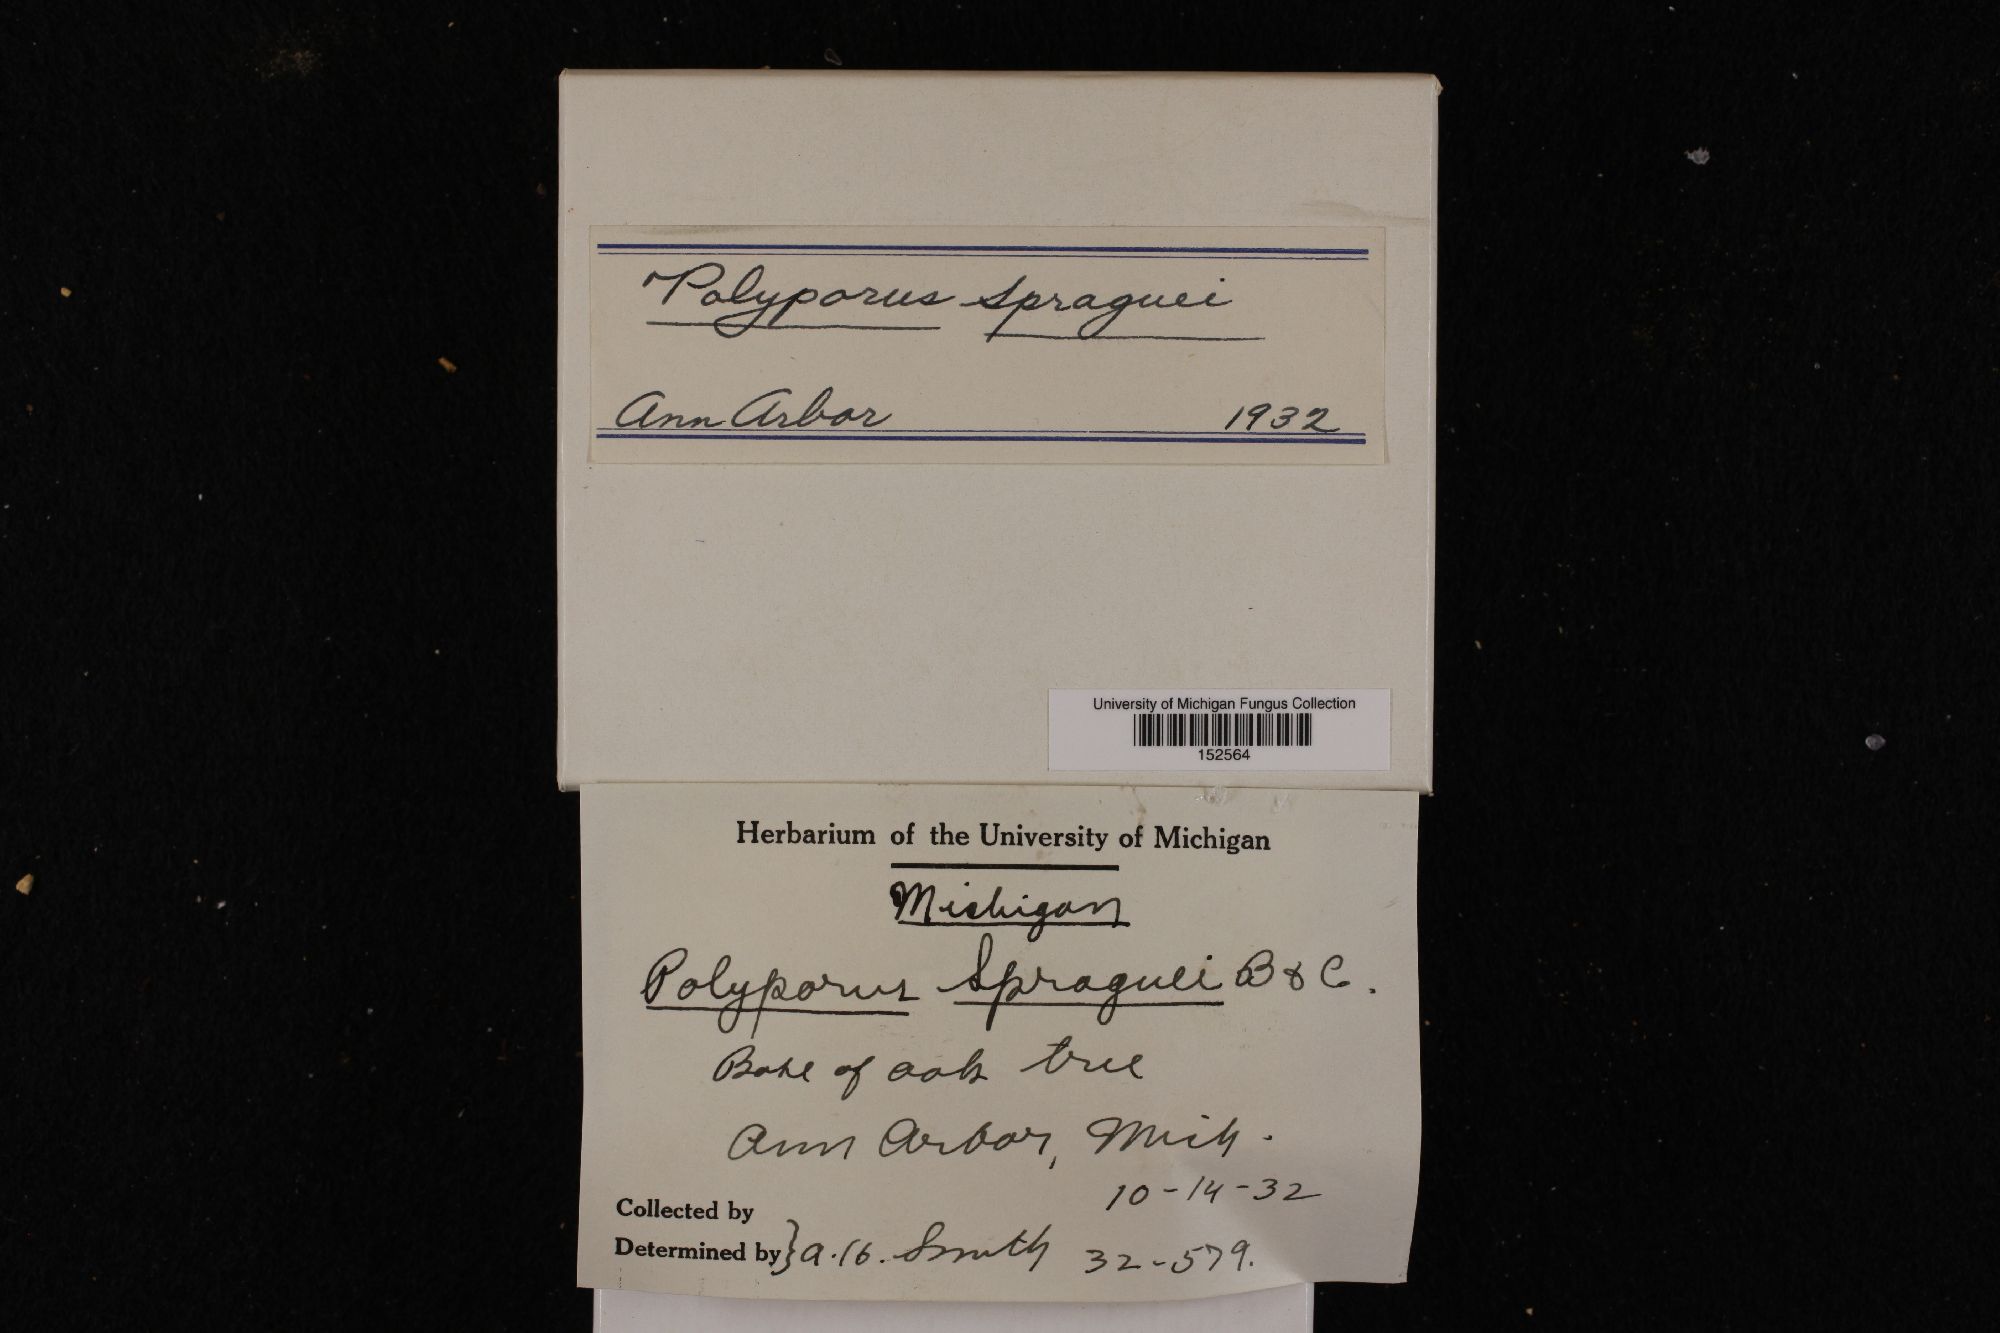 Polyporus Spraguei
Ann Arbor 1932
University of Michigan Fungus Collection
152564
Herbarium of the University of Michigan
Michigan
Polyporus Spraguei B & C.
Base of oak tree
Ann Arbor, Mich.
10-14-32
Collected by
Determined by } A. H. Smith 32-579.